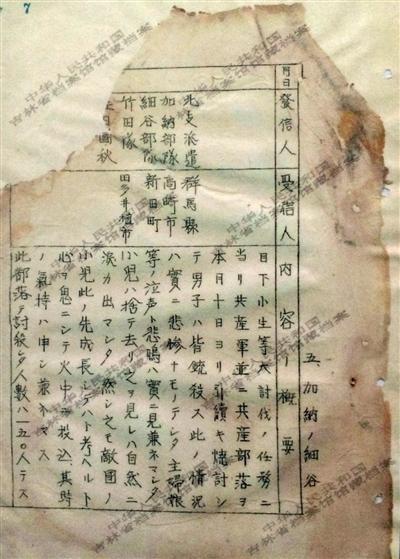 7
五、加納ノ細谷
月日
發信人
受信人
内容ノ概要
北支派遣
加納部隊
細谷部隊
竹田隊
群馬縣
高崎市
新田町
目下小生等大討伐ノ任務ニ
当リ共産軍並ニ共産部落ヲ
本月十日ヨリ引續キ燒討シ
テ男子ハ皆銃殺ス此ノ情況
ハ實ニ悲惨ナモノデシタ主婦娘
等ノ泣声ト悲鳴ハ實ニ見兼ネマシタ
小児ハ捨テ去リ之ヲ見レハ自然ニ
涙カ出マシタ然シ之モ敵國ノ
小児此ノ先成長シテハト考ヘルト
心ヲ鬼ニシテ火中ニ投込、其時
ノ氣持ハ申シ兼ネマス
此部落デ討殺シタ人数ハ一五〇人デス
中华人民共和国
吉林省档案馆馆藏档案